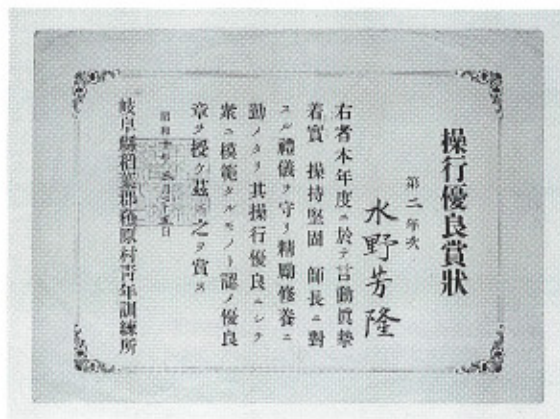 操行優良賞狀
第二年次
水野芳隆
右者本年度ニ於テ言動眞摯
着實 操持堅固 師長ニ對
スル禮儀ヲ守リ精勵修養ニ
勤メタリ其操行優良ニシテ
衆ニ模範タルモノト認メ優良
章ヲ授ケ茲ニ之ヲ賞ス
昭和 年 月 日
岐阜縣稻葉郡 原村青年訓練所